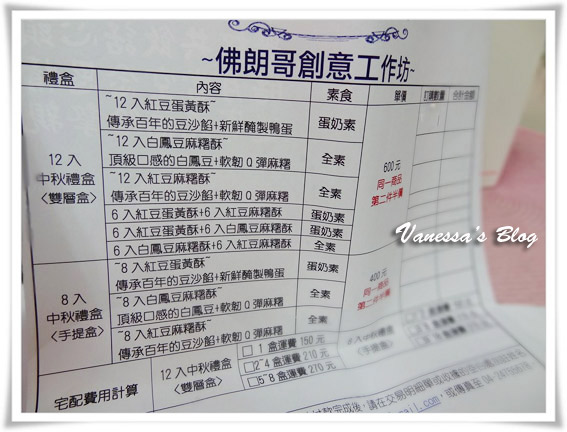 ~佛朗哥創意工作坊~
禮盒 內容 素食 單價 訂購數量 合計金額
12 入
中秋禮盒
〈雙層盒〉
~12 入紅豆蛋黃酥~
傳承百年的豆沙餡+新鮮醃製鴨蛋
蛋奶素
~12 入白鳳豆麻糬酥~
頂級口感的白鳳豆+軟韌 Q 彈麻糬
全素
~12 入紅豆麻糬酥~
傳承百年的豆沙餡+軟韌 Q 彈麻糬
全素
6 入紅豆蛋黃酥+6 入紅豆麻糬酥 蛋奶素
6 入紅豆蛋黃酥+6 入白鳳豆麻糬酥 蛋奶素
6 入白鳳豆麻糬酥+6 入紅豆麻糬酥 全素
600 元
同一商品
第二件半價
Vanessa's Blog
8 入
中秋禮盒
〈手提盒〉
~8 入紅豆蛋黃酥~
傳承百年的豆沙餡+新鮮醃製鴨蛋
蛋奶素
~8 入白鳳豆麻糬酥~
頂級口感的白鳳豆+軟韌 Q 彈麻糬
全素
~8 入紅豆麻糬酥~
傳承百年的豆沙餡+軟韌 Q 彈麻糬
全素
400 元
同一商品
第二件半價
宅配費用計算
12 入中秋禮盒
〈雙層盒〉
□ 1 盒運費 150 元
□2~4 盒運費 210 元
□5~8 盒運費 270 元